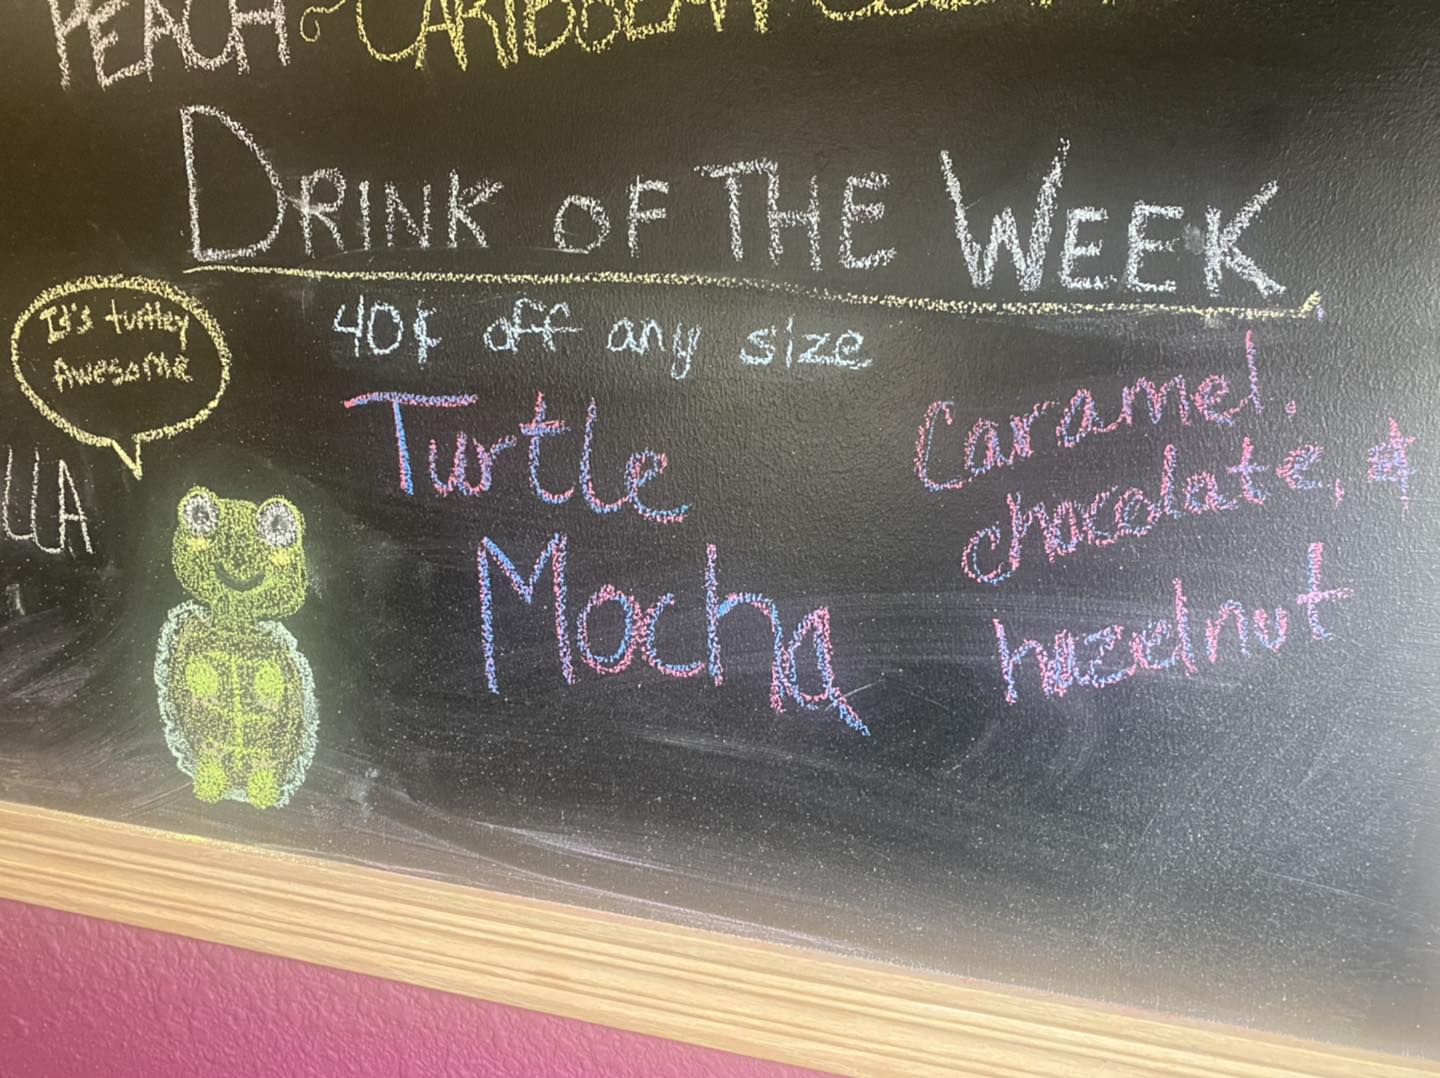 PEACH ~ CARIBBEAN
DRINK OF THE WEEK
It's turtley
Awesome
40¢ off any size
Turtle
Mocha
Caramel.
chocolate, &
hazelnut
LLA